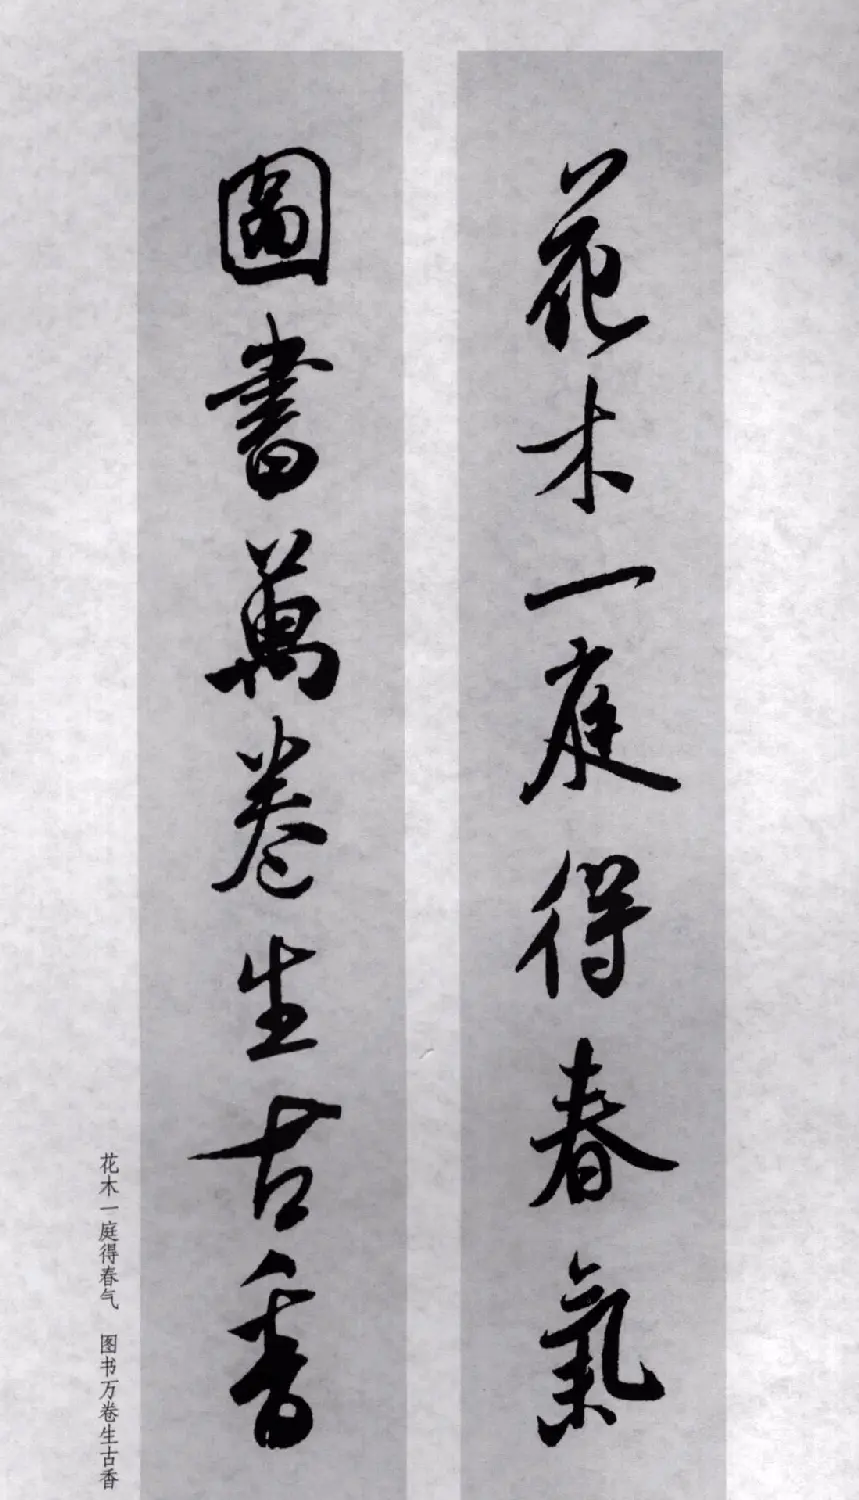 花木一庭得春氣
圖書萬卷生古香
花木一庭得春气　图书万卷生古香